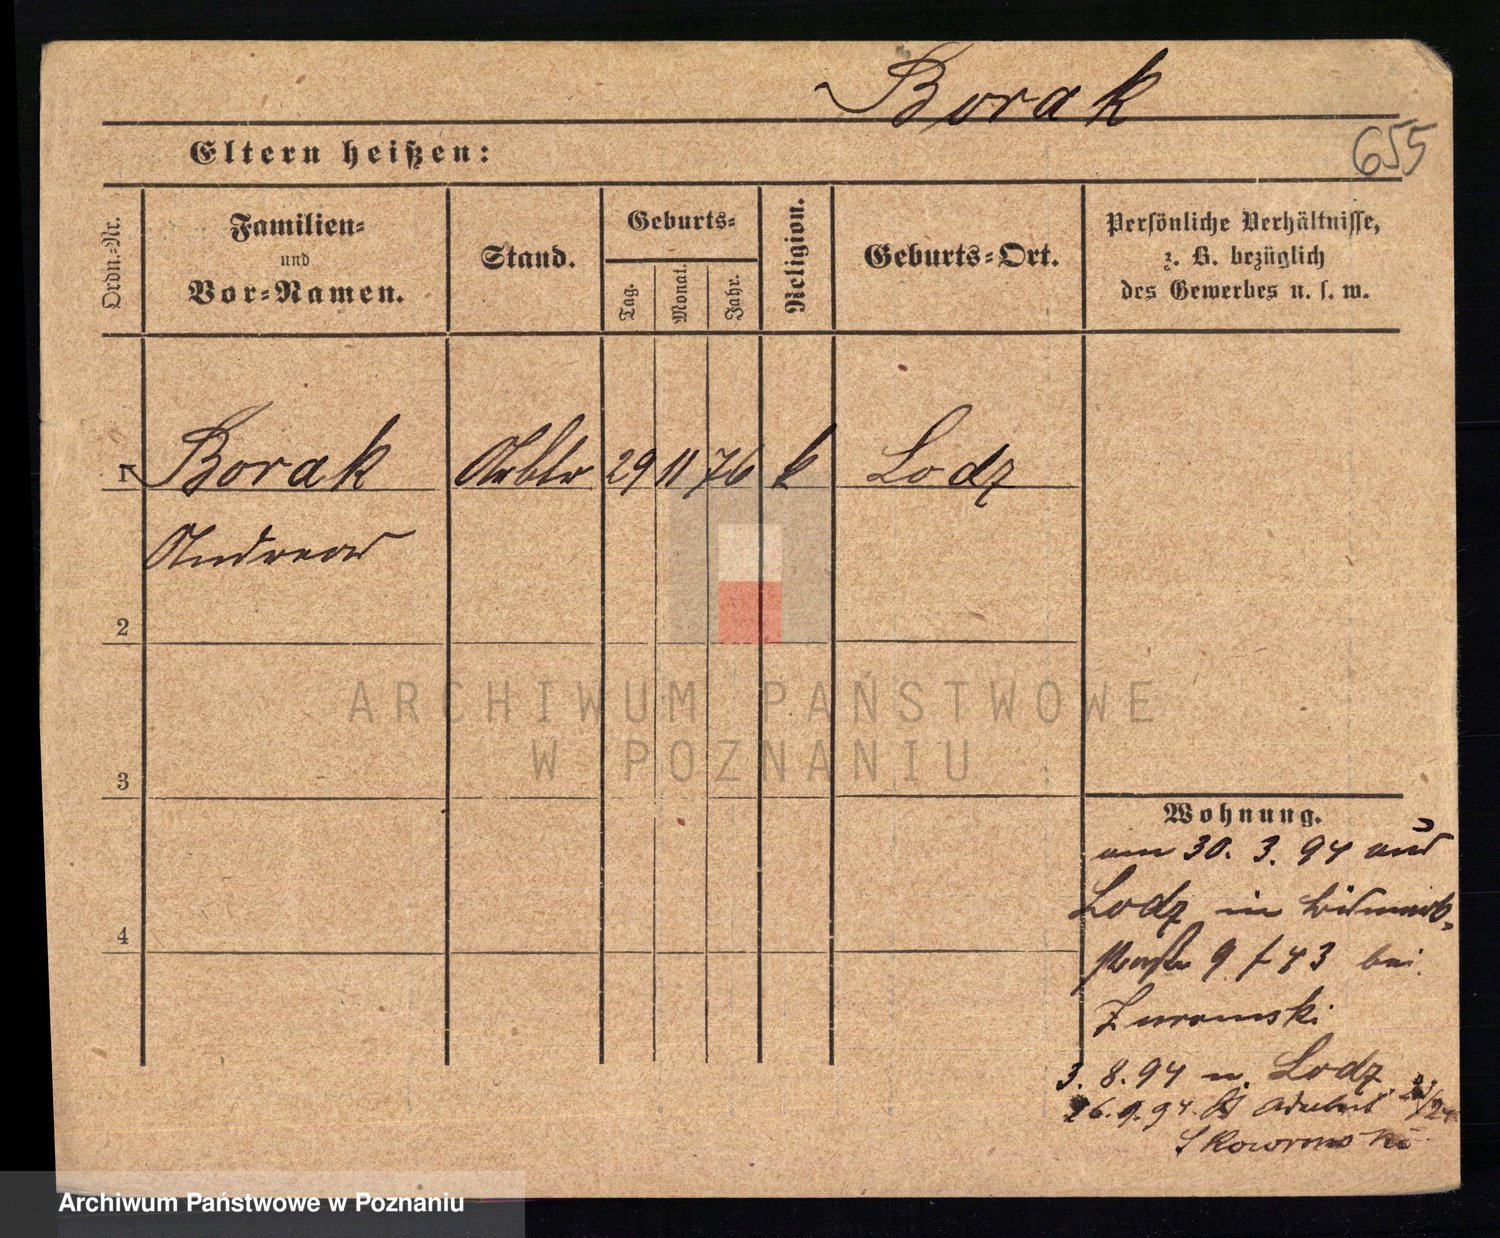 Borak
655
Eltern heißen:
Ordn.-Nr.
Familien-
und
Vor-Namen.
Stand.
Geburts-
Tag.
Monat.
Jahr.
Religion.
Geburts-Ort.
Persönliche Verhältnisse,
z. B. bezüglich
des Gewerbes u. s. w.
1 Borak Arbtr 29 11 76 k Lodz
Andreas
2
3
4
ARCHIWUM PAŃSTWOWE
W POZNANIU
Wohnung.
am 30. 3. 94 aus
Lodz in Bismark-
straße 9 f 43 bei
Zuromski
3. 8. 94 n. Lodz
26. 9. 94. St Adalbert
Skowronski
Archiwum Państwowe w Poznaniu